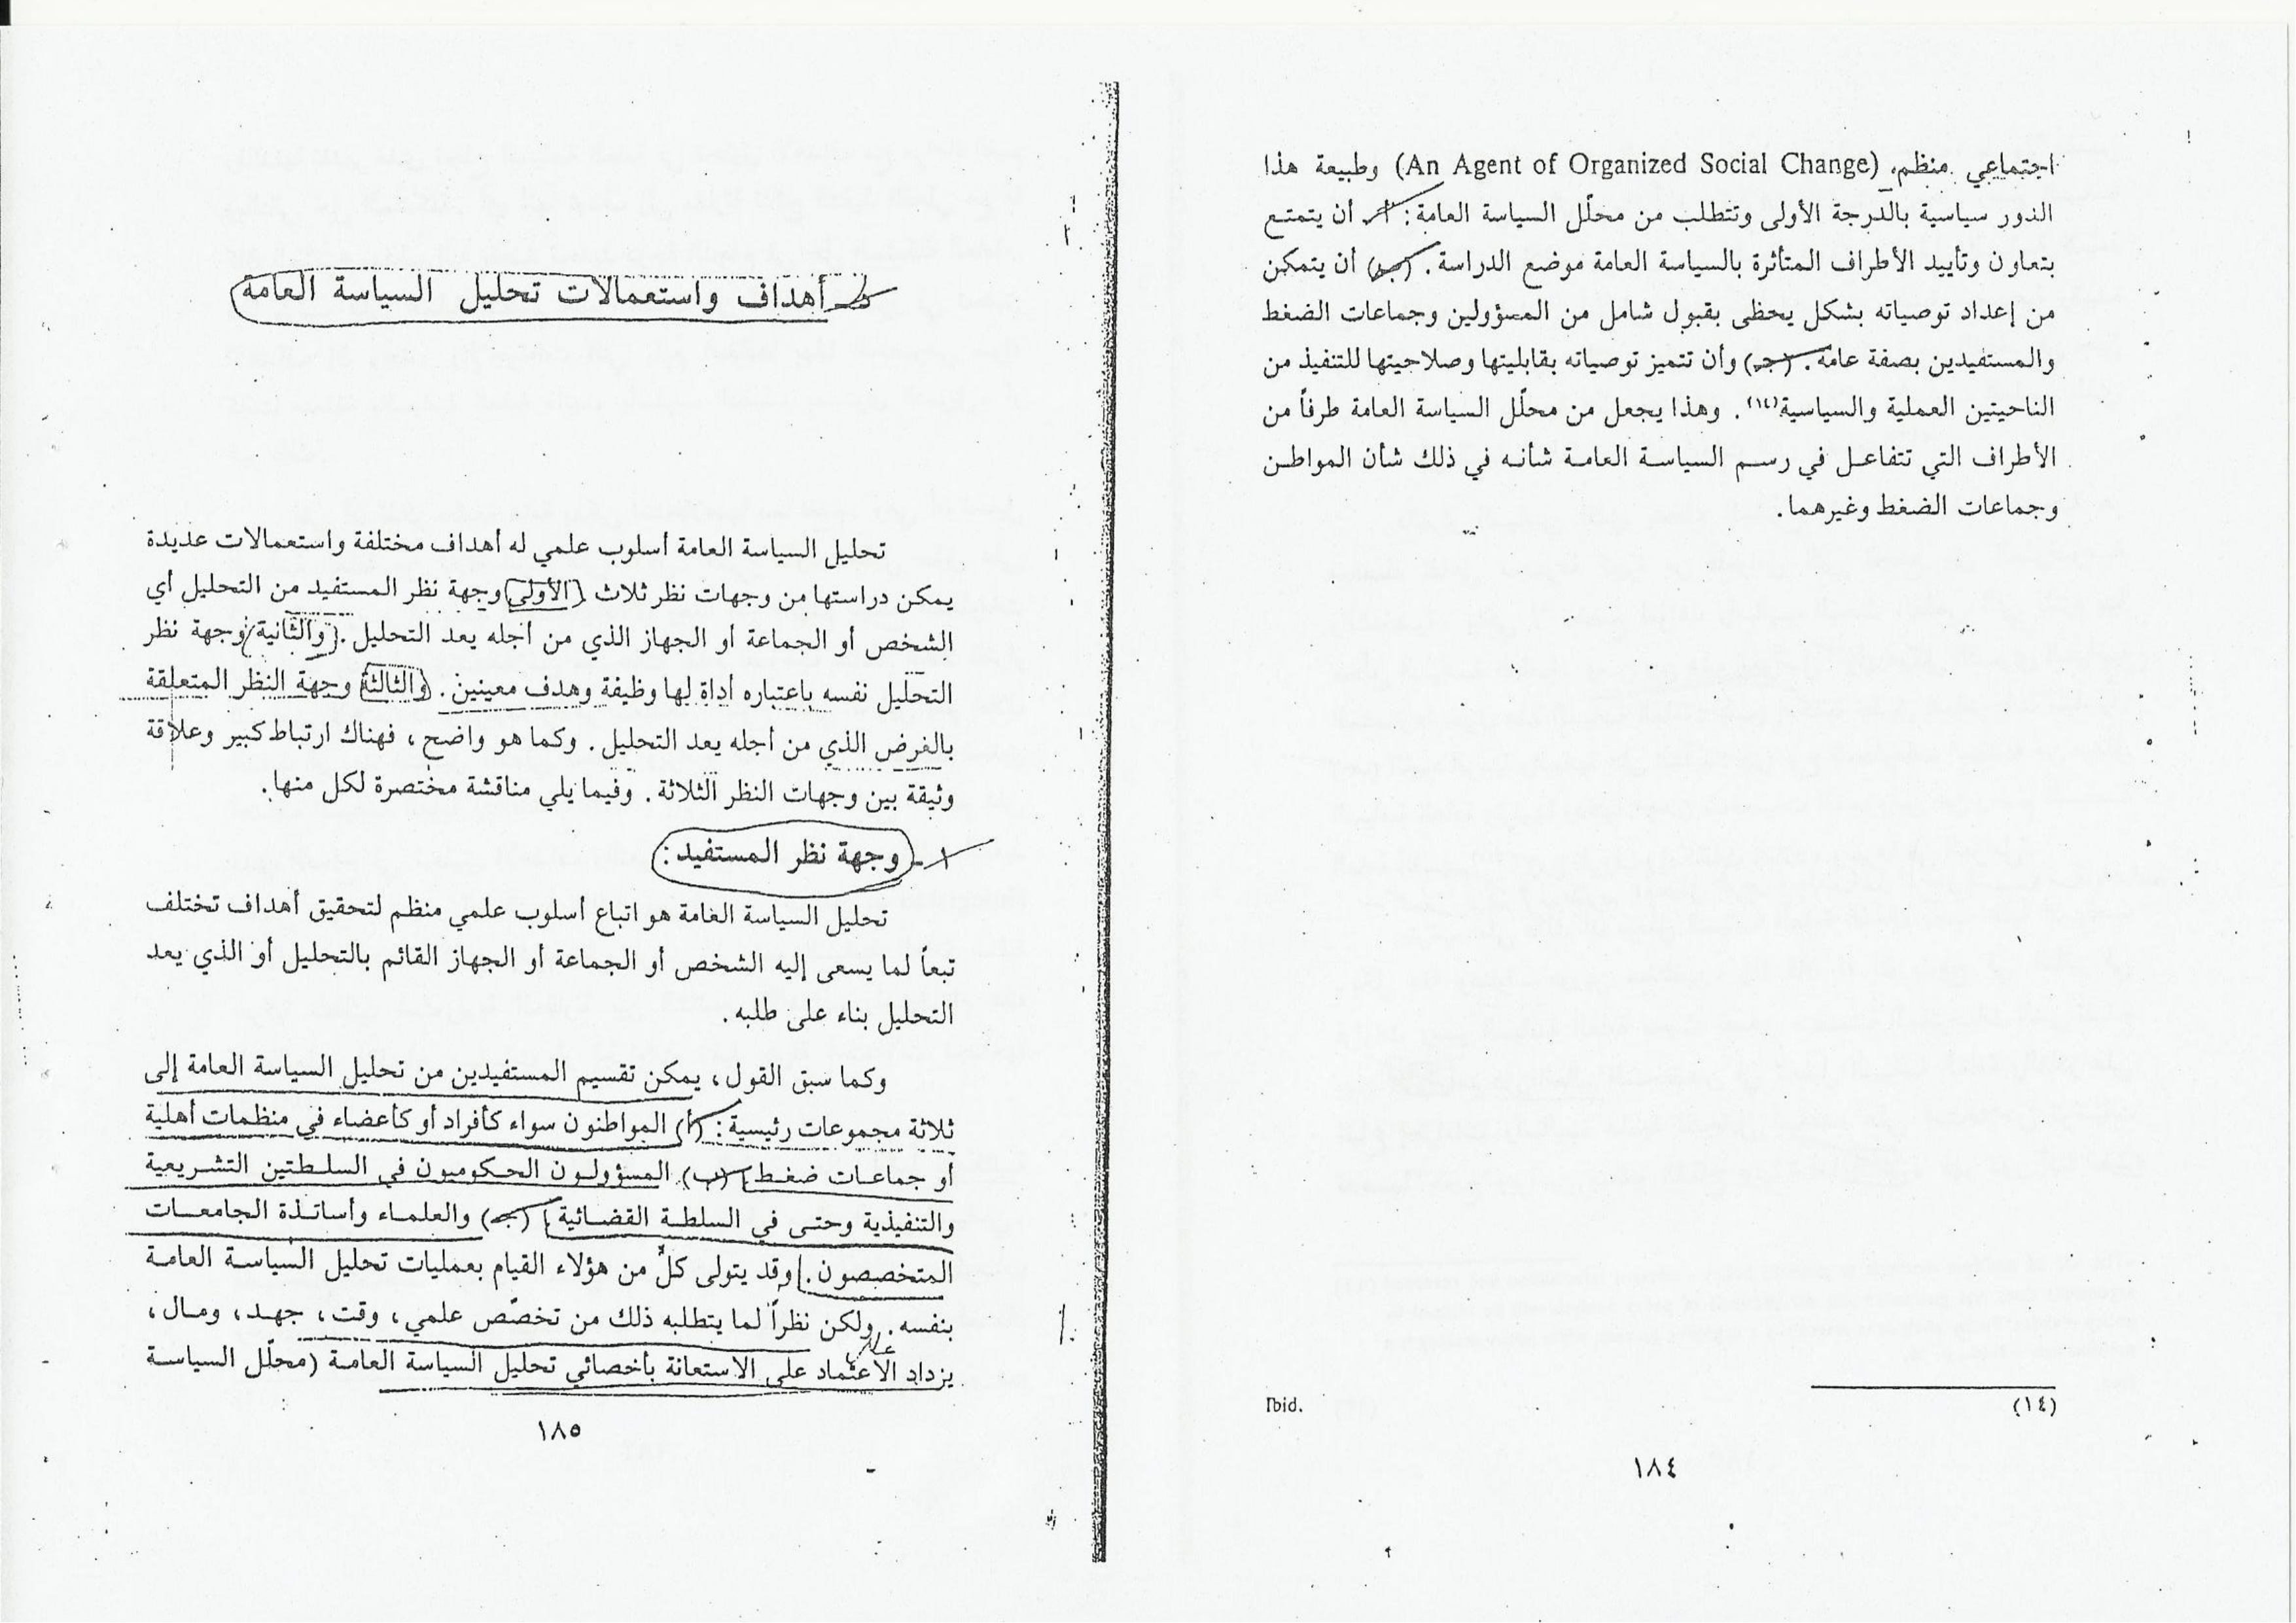 اجتماعي منظم، (An Agent of Organized Social Change) وطبيعة هذا
الدور سياسية بالدرجة الأولى وتتطلب من محلّل السياسة العامة: أ ـ أن يتمتع
بتعاون وتأييد الأطراف المتأثرة بالسياسة العامة موضع الدراسة. (ب) أن يتمكن
من إعداد توصياته بشكل يحظى بقبول شامل من المسؤولين وجماعات الضغط
والمستفيدين بصفة عامة. (جـ) وأن تتميز توصياته بقابليتها وصلاحيتها للتنفيذ من
الناحيتين العملية والسياسية(١٤). وهذا يجعل من محلّل السياسة العامة طرفاً من
الأطراف التي تتفاعل في رسم السياسة العامة شأنه في ذلك شأن المواطن
وجماعات الضغط وغيرهما.
(١٤) Ibid.
١٨٤
أهداف واستعمالات تحليل السياسة العامة
تحليل السياسة العامة أسلوب علمي له أهداف مختلفة واستعمالات عديدة
يمكن دراستها من وجهات نظر ثلاث. (الأولى) وجهة نظر المستفيد من التحليل أي
الشخص أو الجماعة أو الجهاز الذي من أجله يعد التحليل. (والثانية) وجهة نظر
التحليل نفسه باعتباره أداة لها وظيفة وهدف معينين. (والثالثة) وجهة النظر المتعلقة
بالغرض الذي من أجله يعد التحليل. وكما هو واضح، فهناك ارتباط كبير وعلاقة
وثيقة بين وجهات النظر الثلاثة. وفيما يلي مناقشة مختصرة لكل منها.
١ - وجهة نظر المستفيد:
تحليل السياسة العامة هو اتباع أسلوب علمي منظم لتحقيق أهداف تختلف
تبعاً لما يسعى إليه الشخص أو الجماعة أو الجهاز القائم بالتحليل أو الذي يعد
التحليل بناء على طلبه.
وكما سبق القول، يمكن تقسيم المستفيدين من تحليل السياسة العامة إلى
ثلاثة مجموعات رئيسية: (أ) المواطنون سواء كأفراد أو كأعضاء في منظمات أهلية
أو جماعات ضغط (ب) المسؤولون الحكوميون في السلطتين التشريعية
والتنفيذية وحتى في السلطة القضائية (جـ) والعلماء وأساتذة الجامعات
المتخصصون. وقد يتولى كلٌ من هؤلاء القيام بعمليات تحليل السياسة العامة
بنفسه. ولكن نظراً لما يتطلبه ذلك من تخصّص علمي، وقت، جهد، ومال،
يزداد الاعتماد على الاستعانة بأخصائي تحليل السياسة العامة (محلّل السياسة
١٨٥